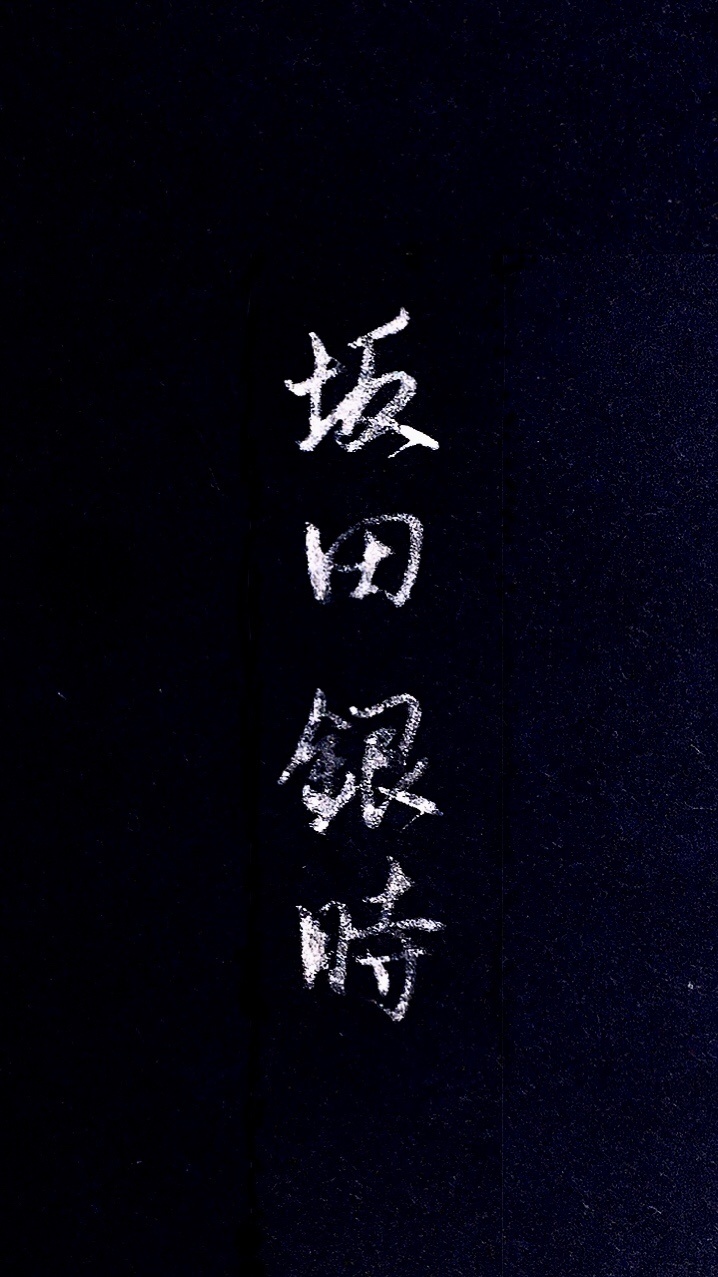 坂田銀時